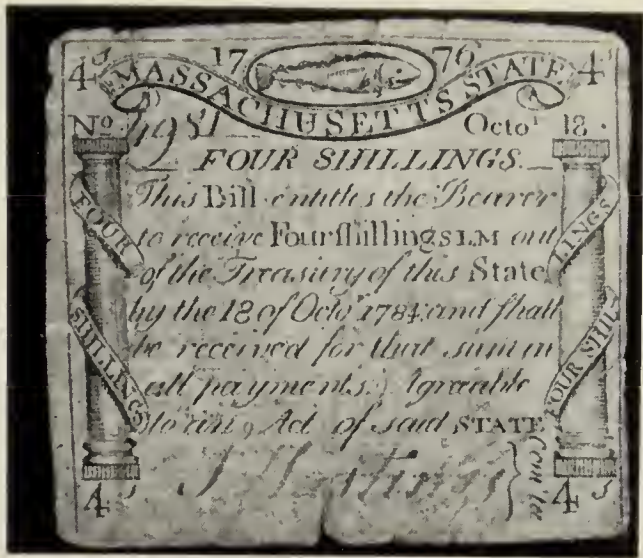 4ˢ 17 76 4ˢ
MASSACHUSETTS STATE
Nº 4981 Octoʳ 18.
FOUR SHILLINGS.
This Bill entitles the Bearer
to receive Four ſhillings LM out
of the Treasury of this State
by the 18 of Octoʳ 1784 and ſhall
be received for that sum in
all payments Agreable
to an Act of said STATE
FOUR
SHILLINGS
FOUR SHIL
LINGS
4ˢ 4ˢ